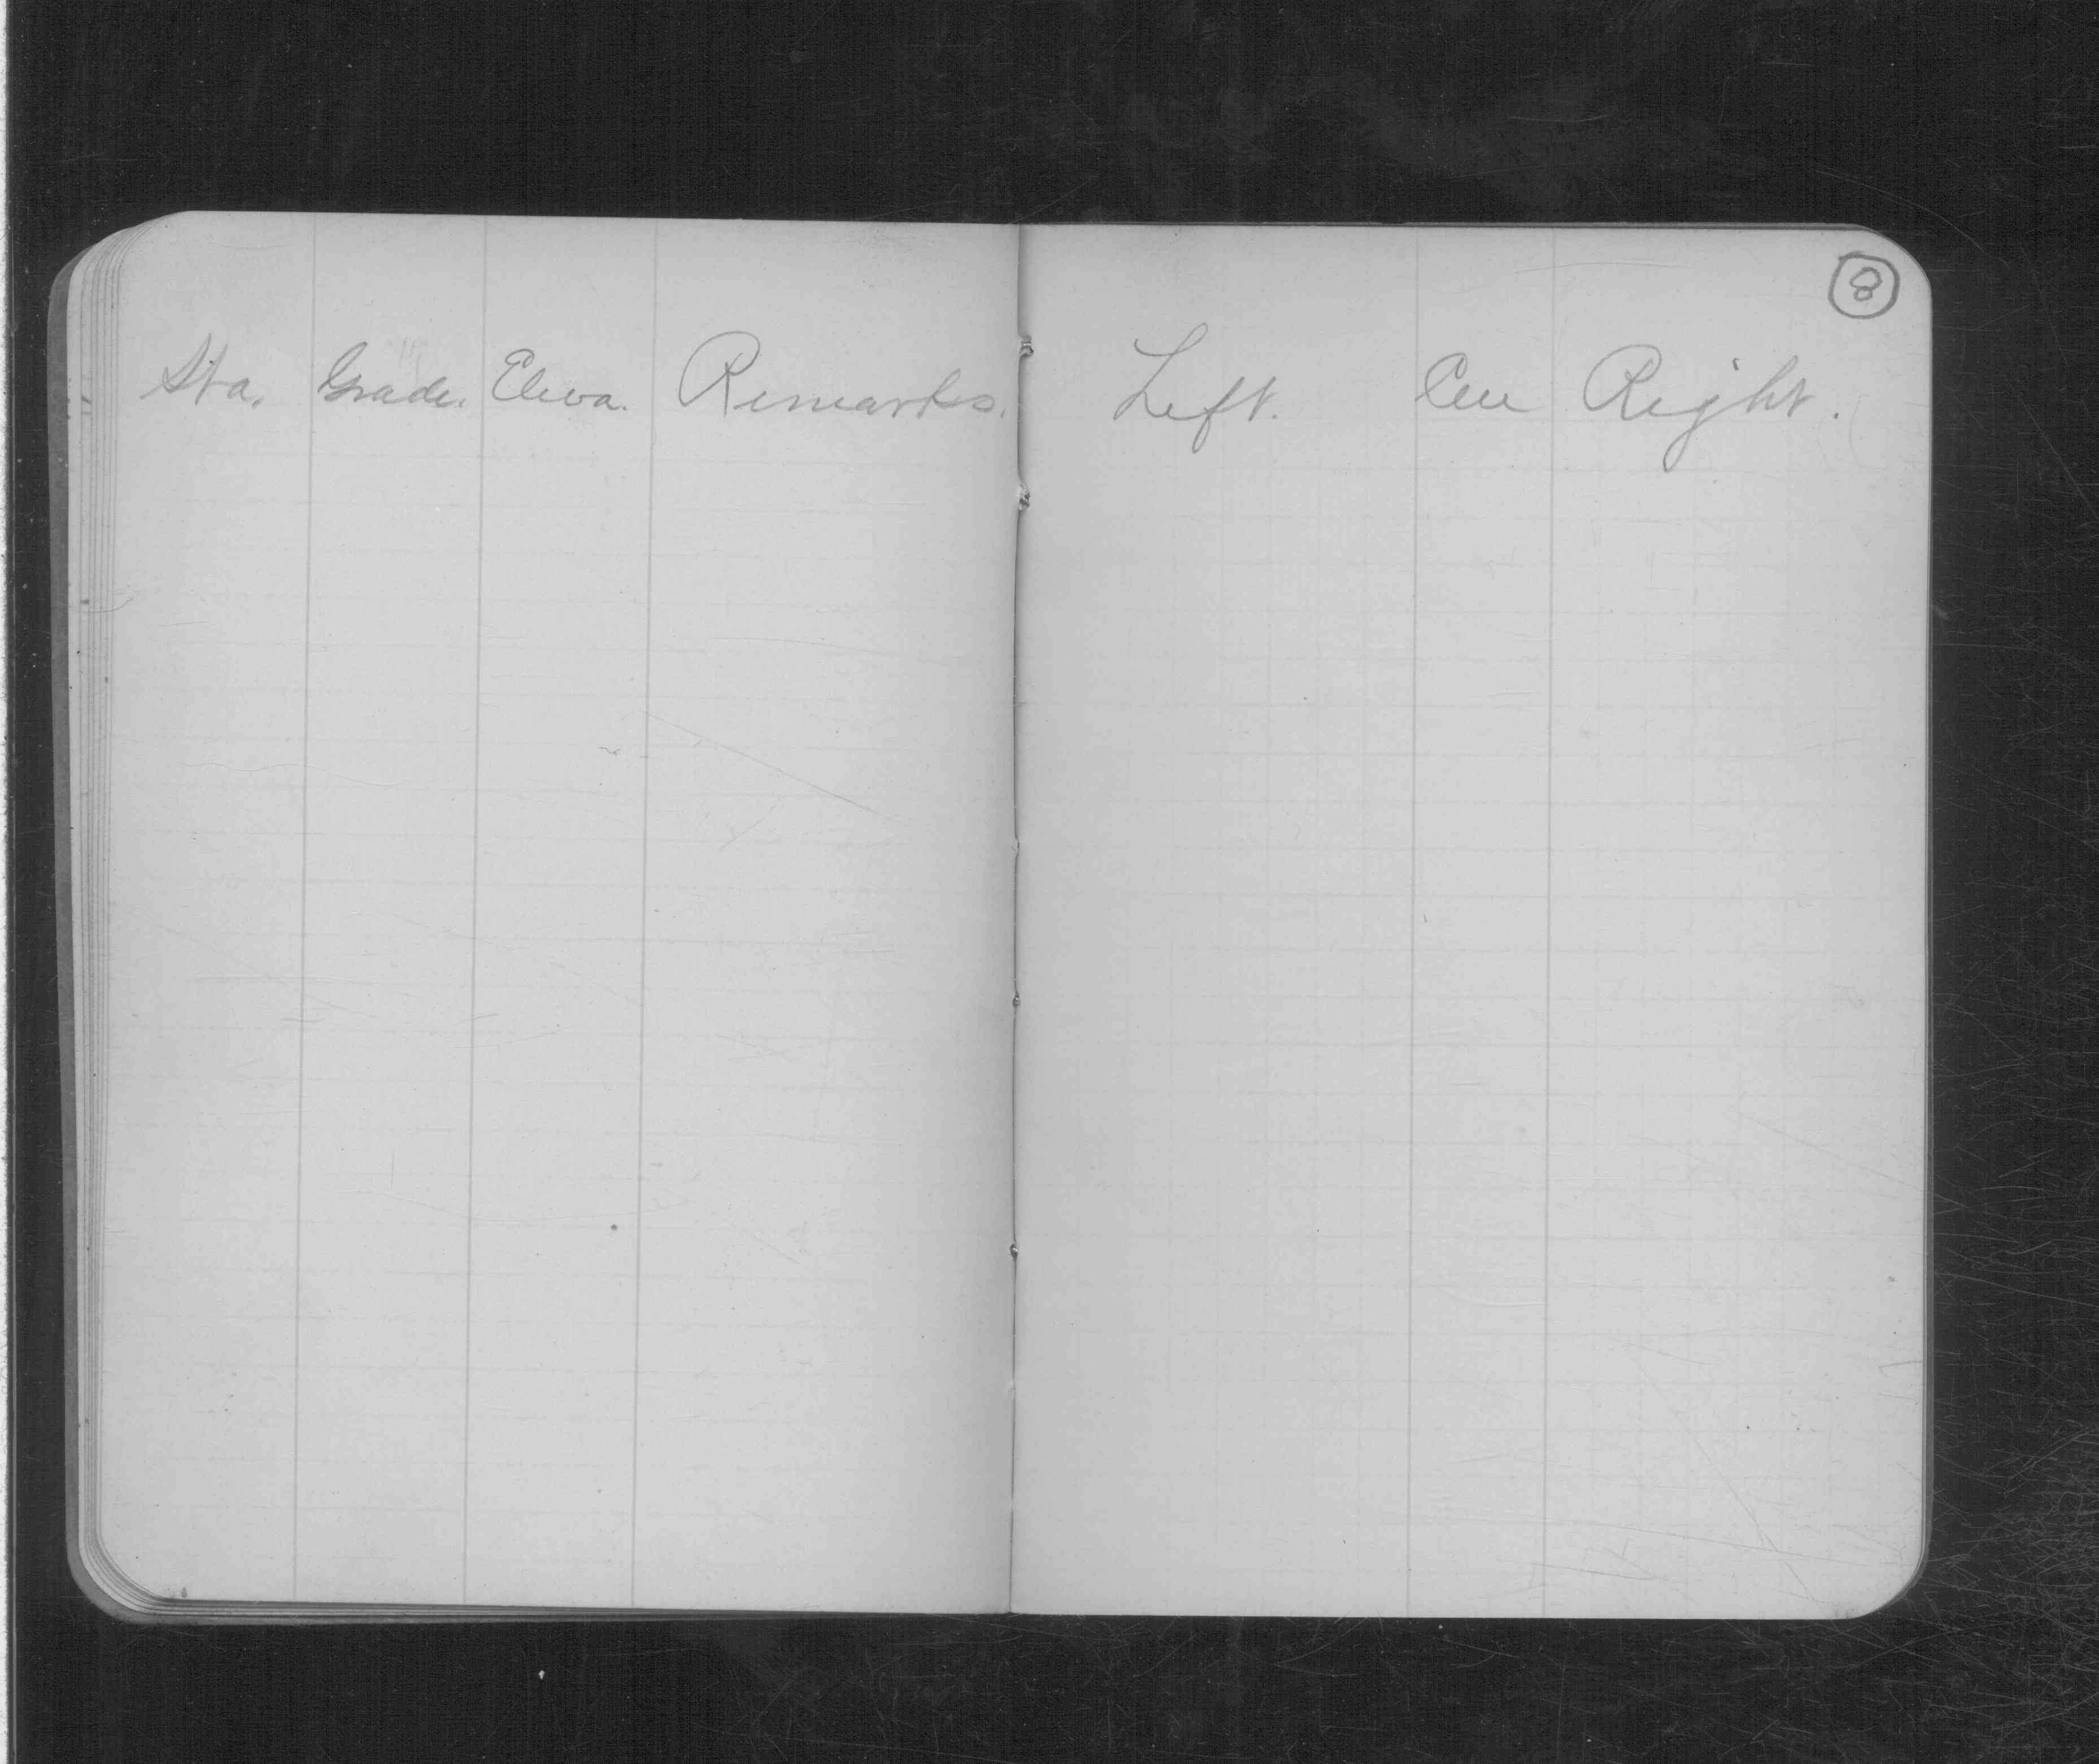 8
Sta. Grade. Eleva. Remarks. Left. Cen Right.